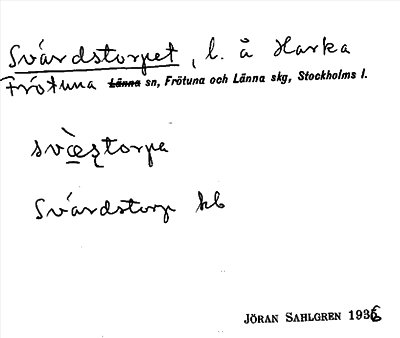 Svärdstorpet, l. å Harka
Frötuna Länna sn, Frötuna och Länna skg, Stockholms l.
svæ̀ʂtorpa
Svärdstorp hb
JÖRAN SAHLGREN 1936